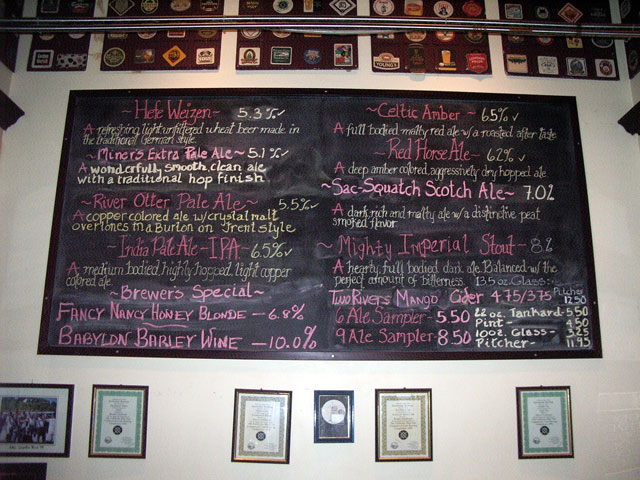 Hefe Weizen - 5.3% ✓
A refreshing light unfiltered wheat beer made in
the traditional German style.
~Miner's Extra Pale Ale~ 5.1% ✓
A wonderfully smooth, clean ale
with a traditional hop finish
~River Otter Pale Ale~ 5.5% ✓
A copper colored ale w/crystal malt
overtones in a Burton on Trent style
~India Pale Ale - IPA - 6.5% ✓
A medium bodied, highly hopped, light copper
colored ale
~Brewers Special~
Fancy Nancy Honey Blonde - 6.8%
Babylon Barley Wine - 10.0%
~Celtic Amber - 6.5% ✓
A full bodied malty red ale w/a roasted after taste
Red Horse Ale~ 6.2% ✓
A deep amber colored, aggressively dry hopped ale
~Sac-Squatch Scotch Ale~ 7.0%
A dark, rich and malty ale w/a distinctive peat
smoked flavor
~Mighty Imperial Stout - 8%
A hearty, full bodied dark ale. Balanced w/the
perfect amount of bitterness. 13.5 oz. Glass
Two Rivers Mango Cider 4.75/3.75 Pitcher 12.50
6 Ale Sampler - 5.50
9 Ale Sampler - 8.50
22 oz. Tankard - 5.50
Pint - 4.50
10 oz. Glass - 3.25
Pitcher - 11.95